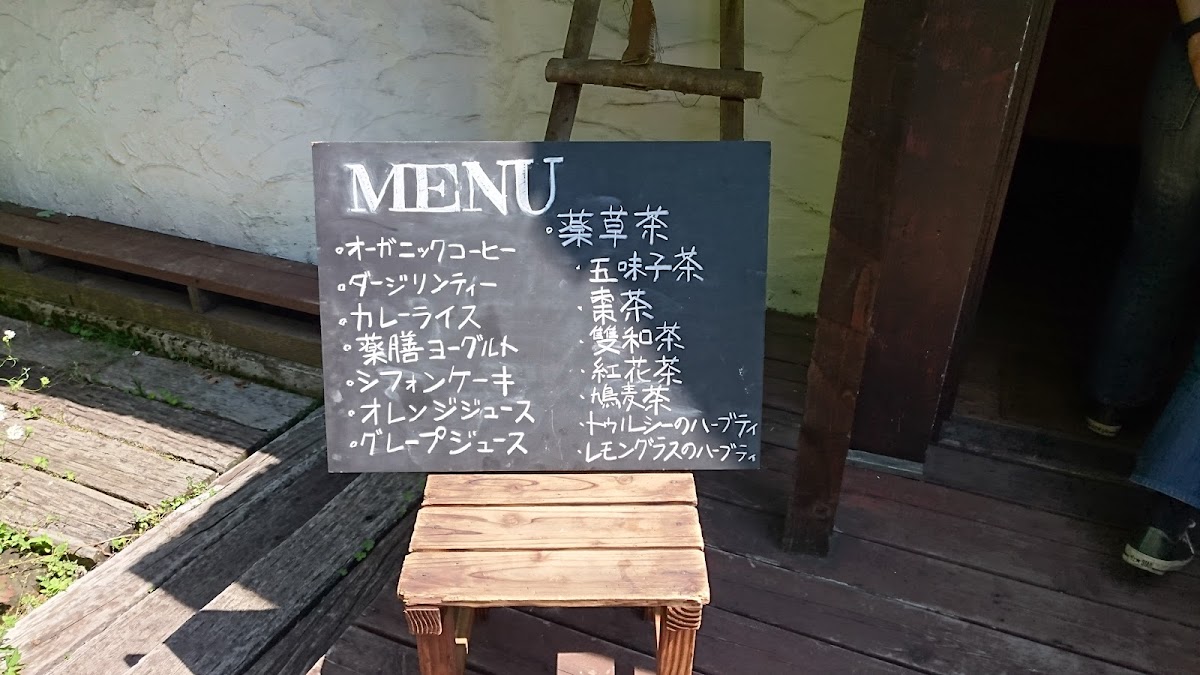 MENU
◦オーガニックコーヒー
◦ダージリンティー
◦カレーライス
◦薬膳ヨーグルト
◦シフォンケーキ
◦オレンジジュース
◦グレープジュース
◦薬草茶
・五味子茶
・棗茶
・雙和茶
・紅花茶
・鳩麦茶
・トゥルシーのハーブティ
・レモングラスのハーブティ